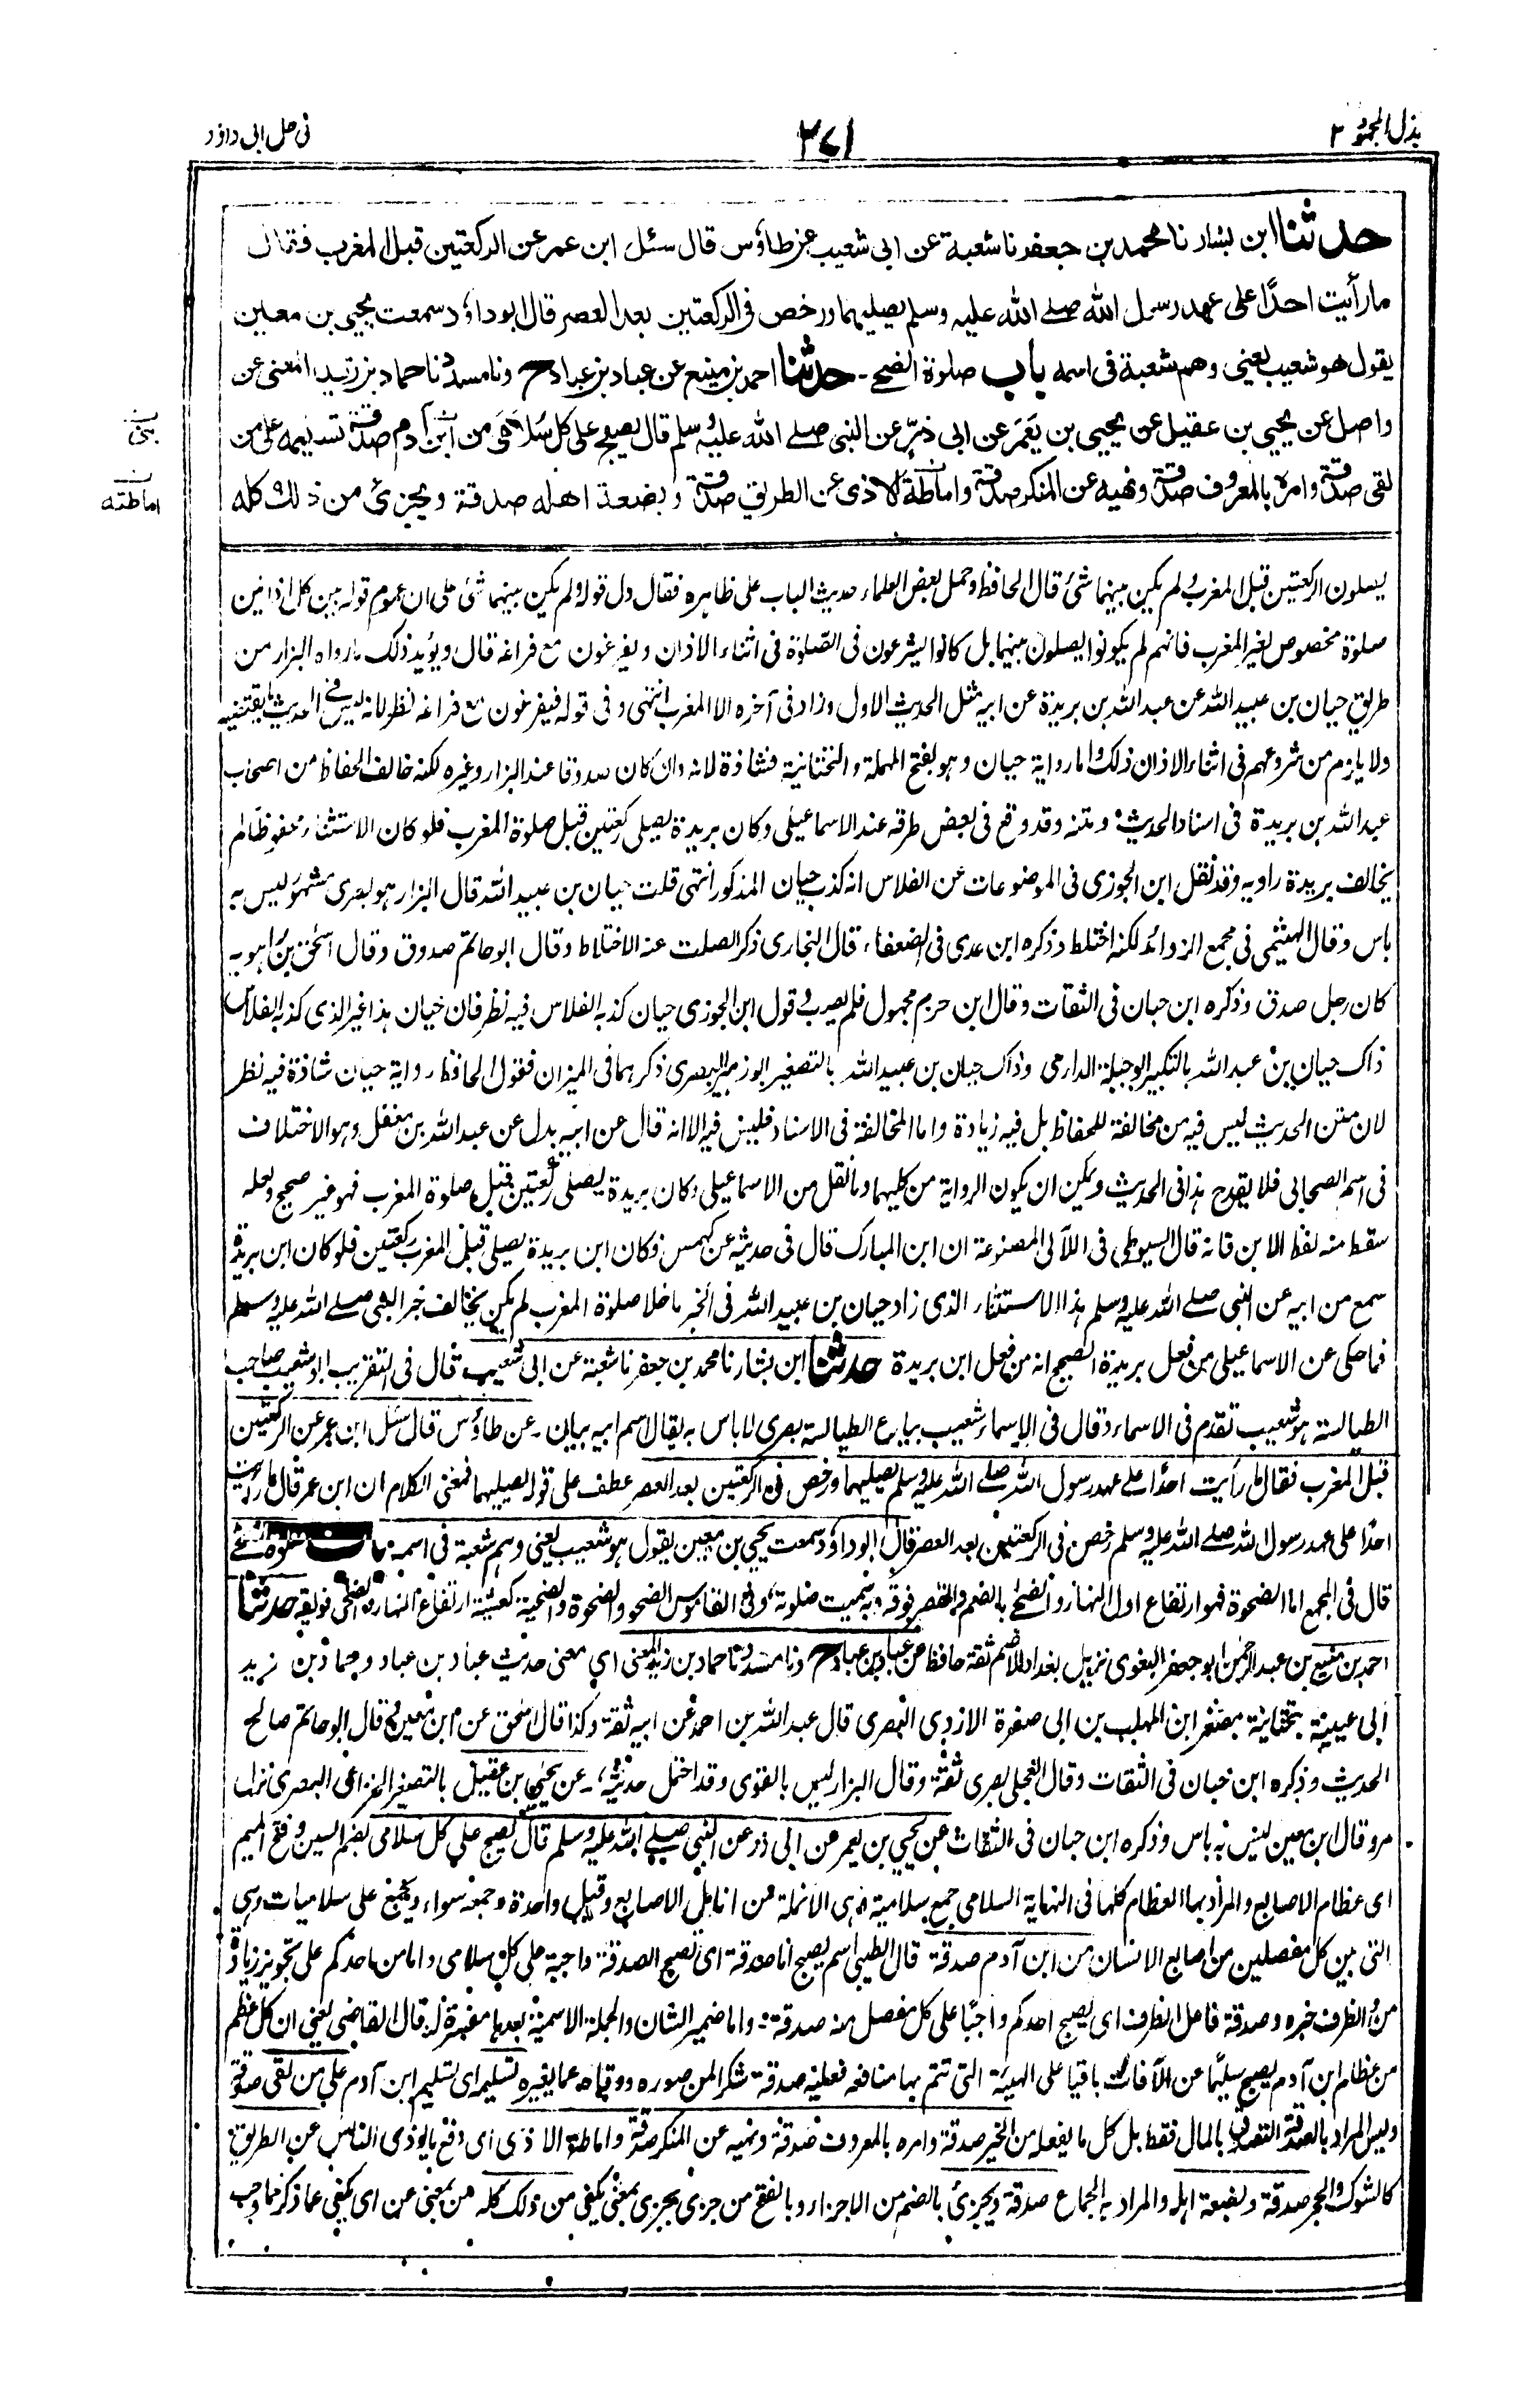 بذل المجهود ٢
٢٧١
فى حل ابى داؤد
حدثنا ابن بشار نا محمد بن جعفر نا شعبة عن ابى شعيب عن طاؤس قال سئل ابن عمر عن الركعتين قبل المغرب فقال
ما رأيت احدًا على عهد رسول الله صلے الله عليه وسلم يصليهما ورخص فى الركعتين بعد العصر قال ابو داؤد سمعت يحيى بن معين
يقول هو شعيب يعنى وهم شعبة فى اسمه باب صلوة الضحى - حدثنا احمد بن منيع عن عباد بن عباد ح ونا مسدد نا حماد بن زيد المعنى عن
واصل عن يحيى بن عقيل عن يحيى بن يَعمَر عن ابى ذرّ عن النبى صلے الله عليه وسلم قال يصبح على كل سُلامَى من ابن آدم صدقة تسليمه على من
لقى صدقة وامره بالمعروف صدقة ونهيه عن المنكر صدقة واماطة الاذى عن الطريق صدقة وبضعة اهله صدقة ويجزئ من ذلك كله
اماطته
يصلون الركعتين قبل المغرب ولم يكن بينهما شئ قال الحافظ وحمل بعض العلماء حديث الباب على ظاهره فقال دل قوله ولم يكن بينهما شئ على ان عموم قوله بين كل اذانين
صلوة مخصوص لغير المغرب فانهم لم يكونوا يصلون بينهما بل كانوا يشرعون فى الصلوة فى اثناء الاذان ويفرغون مع فراغه قال ويؤيد ذلك ما رواه البزار من
طريق حيان بن عبيد الله عن عبد الله بن بريدة عن ابيه مثل الحديث الاول وزاد فى آخره الا المغرب انتهى وفى قوله فيفرغون مع فراغه نظر لانه ليس فى الحديث ما يقتضيه
ولا يلزم من شروعهم فى اثناء الاذان ذلك واما رواية حيان وهو بفتح المهملة والتختانية فشاذة لانه وان كان صدوقا عند البزار وغيره لكنه خالف الحفاظ من اصحاب
عبد الله بن بريدة فى اسناد الحديث ومتنه وقد وقع فى بعض طرقه عند الاسماعيلى وكان بريدة يصلى ركعتين قبل صلوة المغرب فلو كان الاستثناء محفوظا لم
يخالف بريدة راويه وقد نقل ابن الجوزى فى الموضوعات عن الفلاس انه كذب حيان المذكور انتهى قلت حيان بن عبيد الله قال البزار هو بصرى مشهور ليس به
باس وقال الهيثمى فى مجمع الزوائد لكنه اختلط وذكره ابن عدى فى الضعفاء قال البخارى ذكر الصلت عنه الاختلاط وقال ابو حاتم صدوق وقال اسحق بن راهويه
كان رجل صدق وذكره ابن حبان فى الثقات وقال ابن حزم مجهول فلم يصب وقول ابن الجوزى حيان كذبه الفلاس فيه نظر فان حيان هذا غير الذى كذبه الفلاس
ذاك حيان بن عبد الله بالتكبير ابو جبلة الدارمى وذاك حيان بن عبيد الله بالتصغير ابو زهير البصرى ذكرهما فى الميزان فقول الحافظ رواية حيان شاذة فيه نظر
لان متن الحديث ليس فيه من مخالفة للحفاظ بل فيه زيادة واما المخالفة فى الاسناد فليس فيه الا انه قال عن ابيه بدل عن عبد الله بن مغفل وهو الاختلاف
فى اسم الصحابى فلا يقدح هذا فى الحديث ويمكن ان يكون الرواية من كليهما وما نقل من الاسماعيلى وكان بريدة يصلى ركعتين قبل صلوة المغرب فهو غير صحيح ولعله
سقط منه لفظ الابن فانه قال السيوطى فى اللآلى المصنوعة ان ابن المبارك قال فى حديثه عن كهمس وكان ابن بريدة يصلى قبل المغرب ركعتين فلو كان ابن بريدة
سمع من ابيه عن النبى صلے الله عليه وسلم هذا الاستثناء الذى زاد حيان بن عبيد الله فى الخبر ما خلا صلوة المغرب لم يكن يخالف خبر النبى صلے الله عليه وسلم
فما حكى عن الاسماعيلى من فعل بريدة الصحيح انه من فعل ابن بريدة حدثنا ابن بشار نا محمد بن جعفر نا شعبة عن ابى شعيب قال فى التقريب ابو شعيب صاحب
الطيالسة هو شعيب تقدم فى الاسماء وقال فى الاسماء شعيب بياع الطيالسة بصرى لا باس به يقال اسم ابيه بيان - عن طاؤس قال سئل ابن عمر عن الركعتين
قبل المغرب فقال ما رأيت احدًا على عهد رسول الله صلے الله عليه وسلم يصليهما ورخص فى الركعتين بعد العصر عطف على قوله يصليهما فمعنى الكلام ان ابن عمر قال ما رأيت
احدًا على عهد رسول الله صلے الله عليه وسلم رخص فى الركعتين بعد العصر قال ابو داؤد سمعت يحيى بن معين يقول هو شعيب يعنى وهم شعبة فى اسمه باب صلوة الضحى
قال فى المجمع اما الضحوة فهو ارتفاع اول النهار والضحى بالضم والقصر فوقه وبه سميت صلوته، وفى القاموس الضحو والضحوة والضحية كعشية ارتفاع النهار والضحى فويقه حدثنا
احمد بن منيع بن عبد الرحمن ابو جعفر البغوى نزيل بغداد الاصم ثقة حافظ عن عباد بن عباد ح ونا مسدد نا حماد بن زيد المعنى اى معنى حديث عباد بن عباد وحماد بن زيد
ابى عيينة بتختانية مصغر ابن المهلب بن ابى صفرة الازدى البصرى قال عبد الله بن احمد عن ابيه ثقة وكذا قال اسحق عن ابن معين وقال ابو حاتم صالح
الحديث وذكره ابن حبان فى الثقات وقال العجلى بصرى ثقة وقال البزار ليس بالقوى وقد احتمل حديثه، - عن يحيى بن عقيل بالتصغير الخزاعى البصرى نزل
مرو قال ابن معين ليس به باس وذكره ابن حبان فى الثقات عن يحيى بن يعمر عن ابى ذر عن النبى صلے الله عليه وسلم قال يصبح على كل سلامى بضم السين وفتح الميم
اى عظام الاصابع والمراد بها العظام كلها فى النهاية السلامى جمع سلامية وهى الانملة من انامل الاصابع وقيل واحدة وجمعه سواء ويجمع على سلاميات وهى
التى بين كل مفصلين من اصابع الانسان من ابن آدم صدقة قال الطيبى اسم يصبح اما صدقة اى تصبح الصدقة واجبة على كل سلامى واما من احدكم على تجويز زيادة
من والظرف خبره وصدقة فاعل الظرف اى يصبح احدكم واجبًا على كل مفصل منه صدقة واما ضمير الشان والجملة الاسمية بعدها مفسرة له قال القاضى يعنى ان كل عظم
من عظام ابن آدم يصبح سليمًا عن الآفات باقيا على الهيئة التى تتم بها منافعه فعليه صدقة شكرا لمن صوره ووقاه عما يغيره تسليمه اى تسليم ابن آدم على من لقى صدقة
وليس المراد بالصدقة التصدق بالمال فقط بل كل ما يفعله من الخير صدقة وامره بالمعروف صدقة ونهيه عن المنكر صدقة واماطة الاذى اى دفع ما يوذى الناس عن الطريق
كالشوك والحجر صدقة وبضعة اهله والمراد به الجماع صدقة ويجزئ بالضم من الاجزاء وبالفتح من جزى يجزى بمعنى يكفى من ذلك كله من بمعنى عن اى يكفى عما ذكر مما وجب